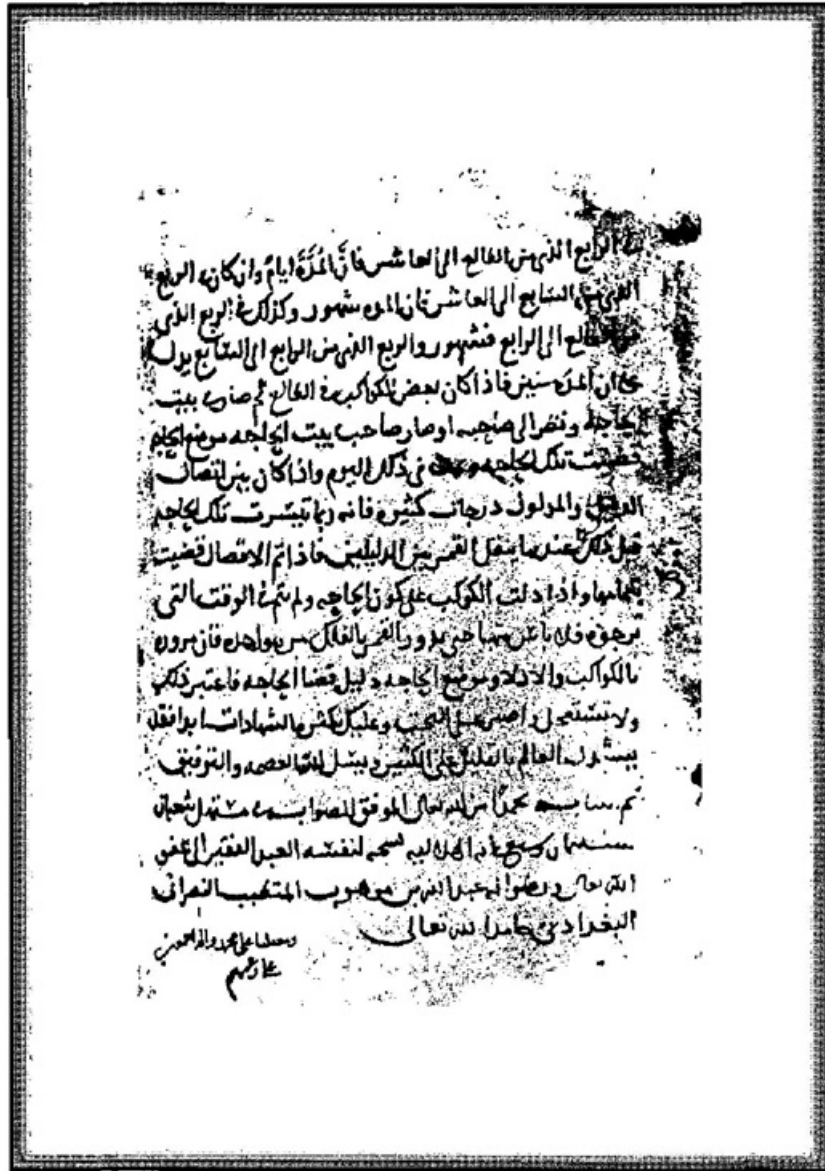 الرابع الذي من الطالع الى العاشر فانَّ المُدَّةَ ايامٌ وان كان في الربع
الذي من السابع الى العاشر فان المده شهور وكذلك في الربع الذي
من الطالع الى الرابع فشهور والربع الذي من الرابع الى السابع يدل
على ان المده سنين فاذا كان بعض الكواكب في الطالع ثم صار في بيت
الحاجة ونظر الى صاحبه او صار صاحب بيت الحاجه موضع الحاجه
قضيت تلك الحاجه في ذلك اليوم واذا كان بين اتصال
الدليل والمدلول درجات كثيره فانه ربما تيسرت تلك الحاجه
قبل ذلك عندما ينقل القمر بين الدليلين فاذا تم الاتصال قضيت
بتمامها واذا دلت الكواكب على كون الحاجه ولم يتم في الوقت التى
ترجوه فلا تائس منها حتى يدور القمر بالفلك من مواضعه فان مروره
بالكواكب والادلا وموضع الحاجه دليل قضا الحاجه فاعتبر ذلك
ولا تستعجل واصبر على التعب وعليك بكثره الشهادات ابدا فقد
يستدل العالم بالقليل على الكثير ونسل الله العصمه والتوفيق
تم بحمد الله تعالى الموفق للصواب في مستهل شعبان
سنه ثمان وسبع مايه الهلاليه نسخه لنفسه العبد الفقير الى عفو
الله تعالى ورضوانه عبد الله بن موهوب المتطبب النصراني
البغدادي حامدا لله تعالى
ومصليا على محمد واله اجمعين